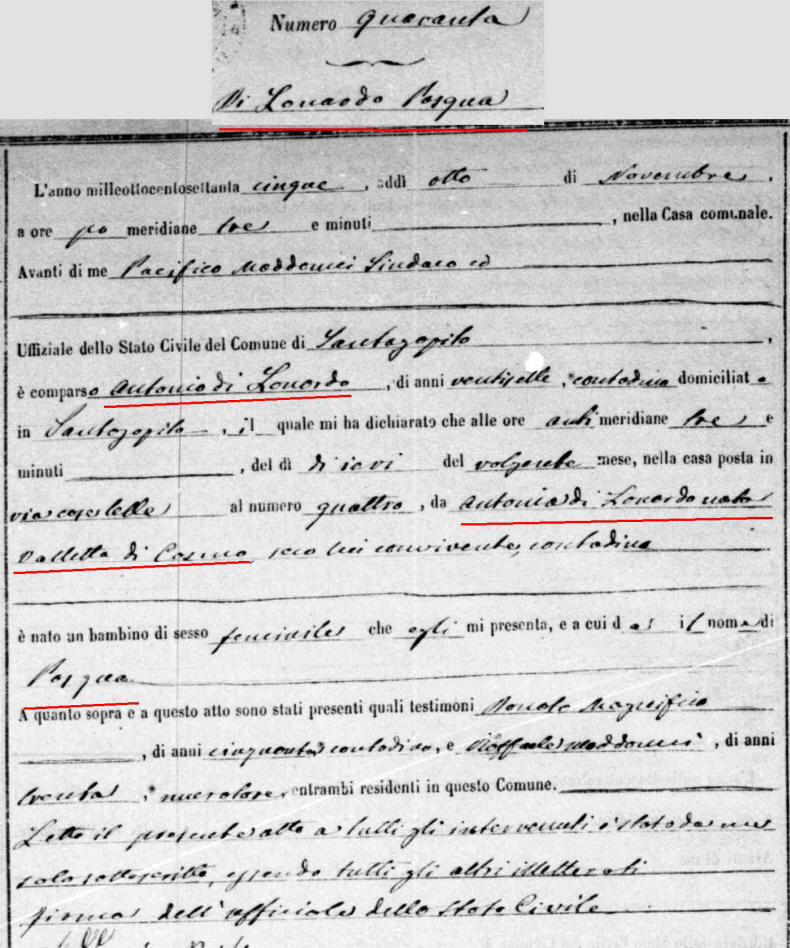 Numero quaranta
Di Lonardo Pasqua
L'anno milleottocentosettanta cinque, addì otto di Novembre,
a ore po meridiane tre e minuti, nella Casa comunale.
Avanti di me Pacifico Sindaco ed
Uffiziale dello Stato Civile del Comune di Santagapito,
è comparso Antonio di Lonardo, di anni ventisette, contadino domiciliato
in Santagapito, il quale mi ha dichiarato che alle ore anti meridiane tre e
minuti, del dì di ieri del volgente mese, nella casa posta in
via caselle al numero quattro, da Antonia di Lonardo nata
Valletta di Cosmo seco lui convivente, contadina
è nato un bambino di sesso feminile che egli mi presenta, e a cui dà il nome di
Pasqua
A quanto sopra e a questo atto sono stati presenti quali testimoni Donato Magnifico
, di anni cinquanta contadino, e Raffaele, di anni
trenta, muratore, entrambi residenti in questo Comune.
Letto il presente atto a tutti gli intervenuti è stato da me
solo sottoscritto, essendo tutti gli altri illetterati
firma dell'ufficiale dello Stato Civile